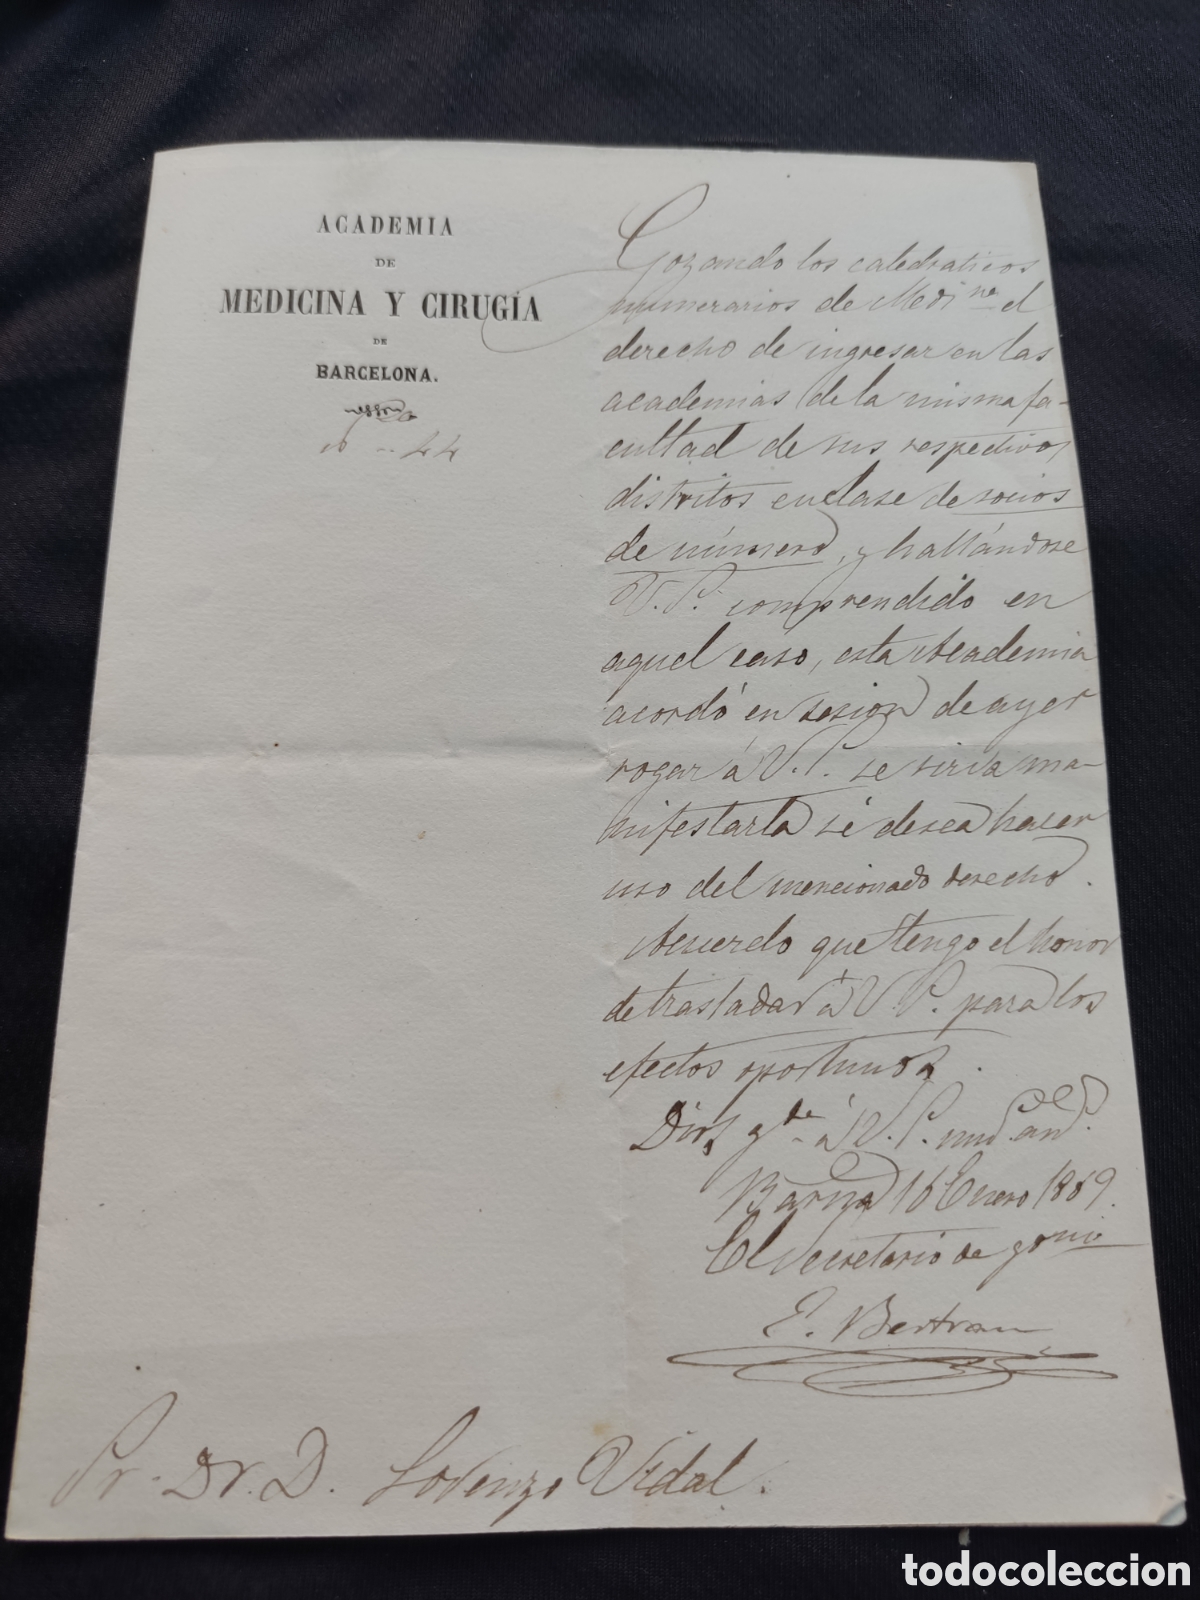 ACADEMIA
DE
MEDICINA Y CIRUGÍA
DE
BARCELONA.
44
Gozando los catedraticos
numerarios de Medi.na el
derecho de ingresar en las
academias de la misma fa-
cultad de sus respectivos
distritos en clase de socios
de número, y hallándose
V.S. comprendido en
aquel caso, esta Academia
acordó en sesion de ayer
rogar á V.S. se sirva ma-
nifestarla si desea hacer
uso del mencionado derecho.
Acuerdo que tengo el honor
de trasladar á V.S. para los
efectos oportunos.
Dios g.de á V.S. m.s a.s
Barna 16 Enero 1869.
El Secretario de gobno
E. Bertran
Sr. Dr. D. Lorenzo Vidal.
todocoleccion